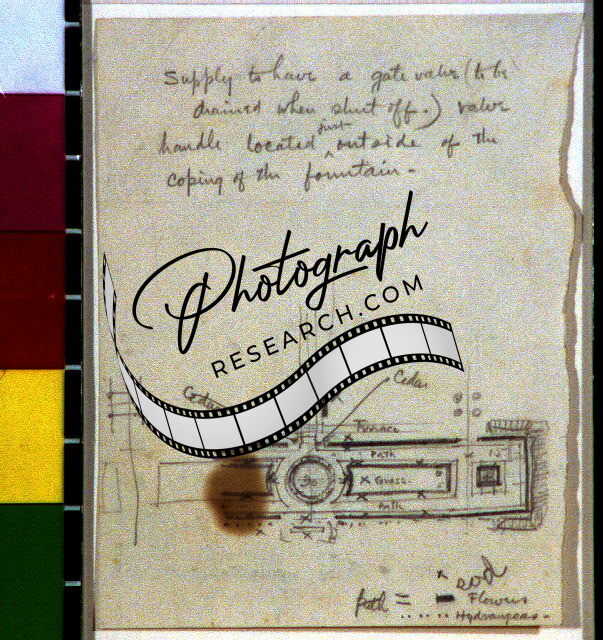 Supply to have a gate valve (to be
drained when shut off.) valve
handle located just outside of the
coping of the fountain -
Photograph
RESEARCH.COM
Cedar
Cedar
Terrace
Path
Grass
Path
Path = sod
Flowers
Hydrangeas -